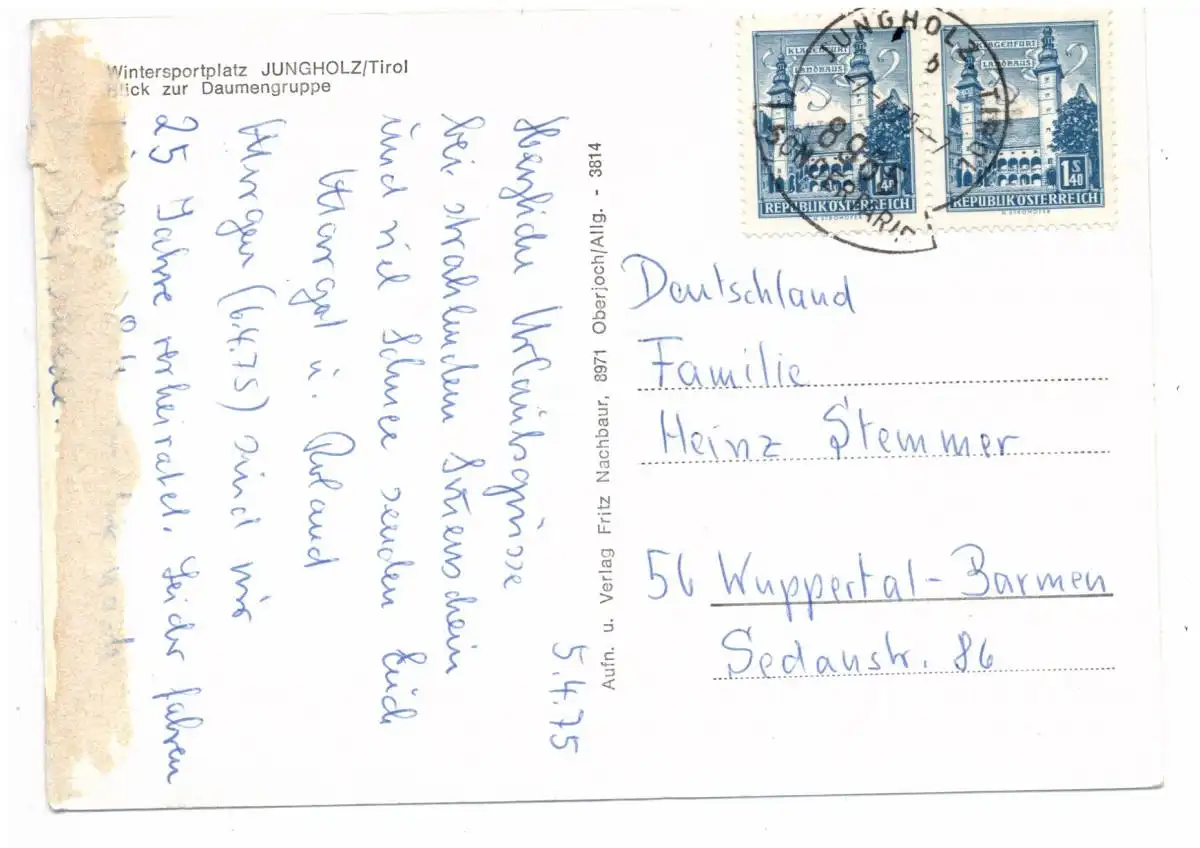 Wintersportplatz JUNGHOLZ/Tirol
Blick zur Daumengruppe
5.4.75
Herzliche Urlaubsgrüsse
bei strahlendem Sonnenschein
und viel Schnee senden Euch
Margot u. Roland
Morgen (6.4.75) sind wir
25 Jahre verheiratet. Leider fahren
Aufn. u. Verlag Fritz Nachbaur, 8971 Oberjoch/Allg. - 3814
KLAGENFURT
LANDHAUS
1 S
40
REPUBLIK ÖSTERREICH
KLAGENFURT
LANDHAUS
1 S
40
REPUBLIK ÖSTERREICH
JUNGHOLZ, TIROL
b
8965
Deutschland
Familie
Heinz Stemmer
56 Wuppertal-Barmen
Sedanstr. 86